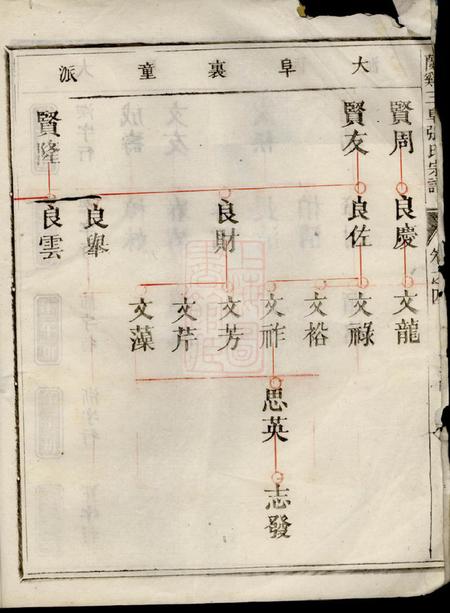 大阜裏童派
賢周
賢友
賢隆
良慶
良佐
良財
良舉
良雲
文龍
文祿
文裕
文祚
文芳
文芹
文藻
思英
志發
蘭谿三阜張氏宗譜